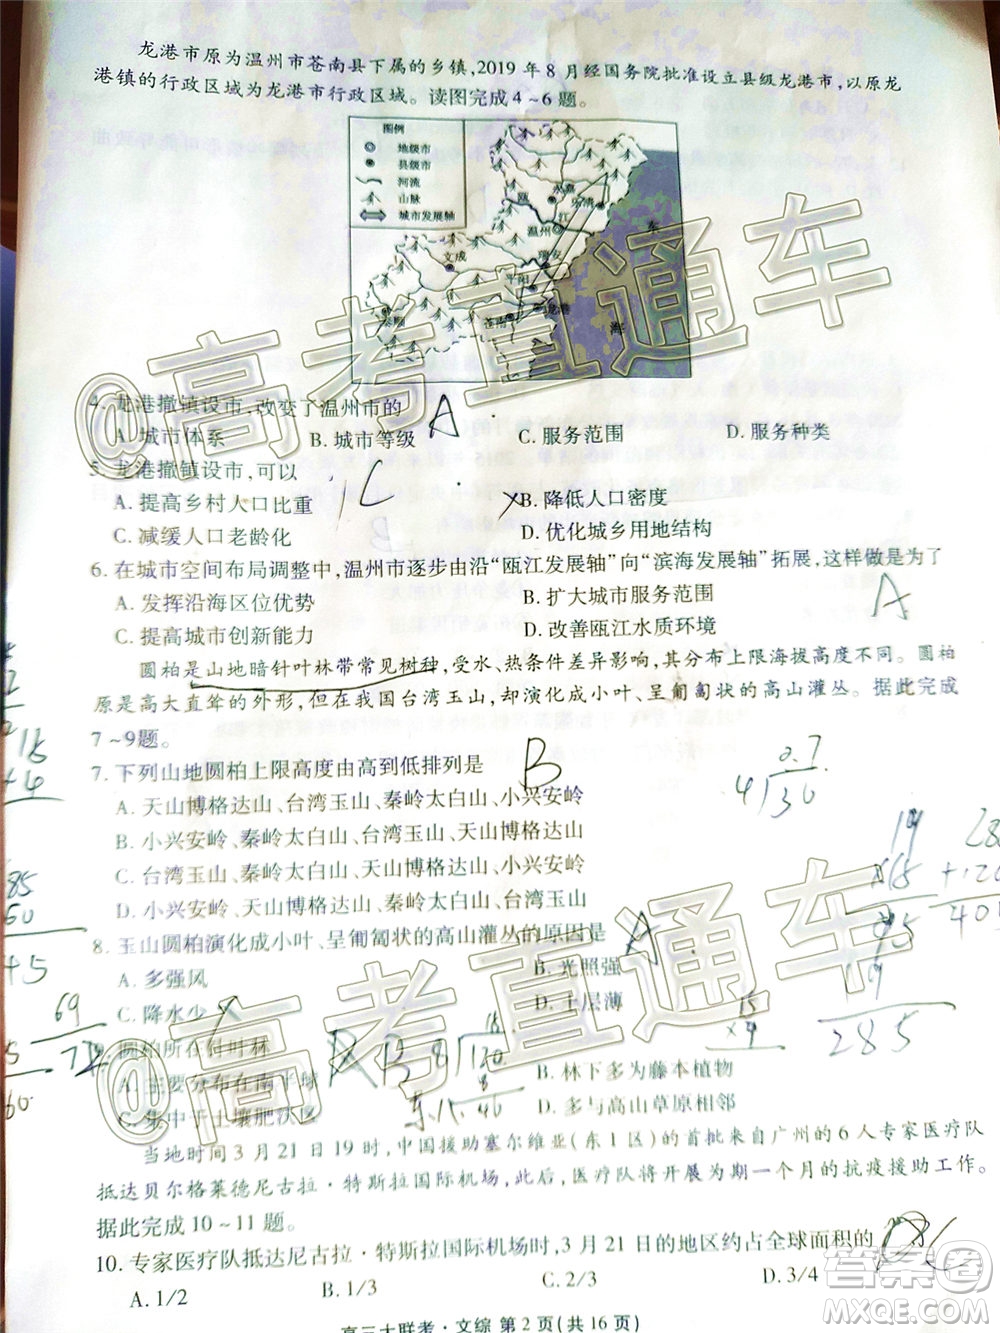 龙港市原为温州市苍南县下属的乡镇,2019年8月经国务院批准设立县级龙港市,以原龙
港镇的行政区域为龙港市行政区域。读图完成4~6题。
图例
地级市
县级市
河流
山脉
城市发展轴
永嘉
瓯
乐清
江
温州
东
文成
瑞安
平阳
苍南
龙港
海
4. 龙港撤镇设市,改变了温州市的 A
A. 城市体系 B. 城市等级 C. 服务范围 D. 服务种类
5. 龙港撤镇设市,可以 C
A. 提高乡村人口比重 B. 降低人口密度
C. 减缓人口老龄化 D. 优化城乡用地结构
6. 在城市空间布局调整中,温州市逐步由沿“瓯江发展轴”向“滨海发展轴”拓展,这样做是为了
A. 发挥沿海区位优势 B. 扩大城市服务范围 A
C. 提高城市创新能力 D. 改善瓯江水质环境
圆柏是山地暗针叶林带常见树种,受水、热条件差异影响,其分布上限海拔高度不同。圆柏
原是高大直耸的外形,但在我国台湾玉山,却演化成小叶、呈匍匐状的高山灌丛。据此完成
7~9题。
7. 下列山地圆柏上限高度由高到低排列是 B
A. 天山博格达山、台湾玉山、秦岭太白山、小兴安岭
B. 小兴安岭、秦岭太白山、台湾玉山、天山博格达山
C. 台湾玉山、秦岭太白山、天山博格达山、小兴安岭
D. 小兴安岭、天山博格达山、秦岭太白山、台湾玉山
8. 玉山圆柏演化成小叶、呈匍匐状的高山灌丛的原因是 A
A. 多强风 B. 光照强
C. 降水少 D. 土层薄
9. 圆柏所在针叶林
A. 主要分布在南半球 B. 林下多为藤本植物
C. 集中于土壤肥沃区 D. 多与高山草原相邻
当地时间3月21日19时,中国援助塞尔维亚(东1区)的首批来自广州的6人专家医疗队
抵达贝尔格莱德尼古拉·特斯拉国际机场,此后,医疗队将开展为期一个月的抗疫援助工作。
据此完成10~11题。
10. 专家医疗队抵达尼古拉·特斯拉国际机场时,3月21日的地区约占全球面积的
A. 1/2 B. 1/3 C. 2/3 D. 3/4
高三大联考·文综 第2页(共16页)
@高考直通车
@高考直通车
答案圈
MXQE.COM